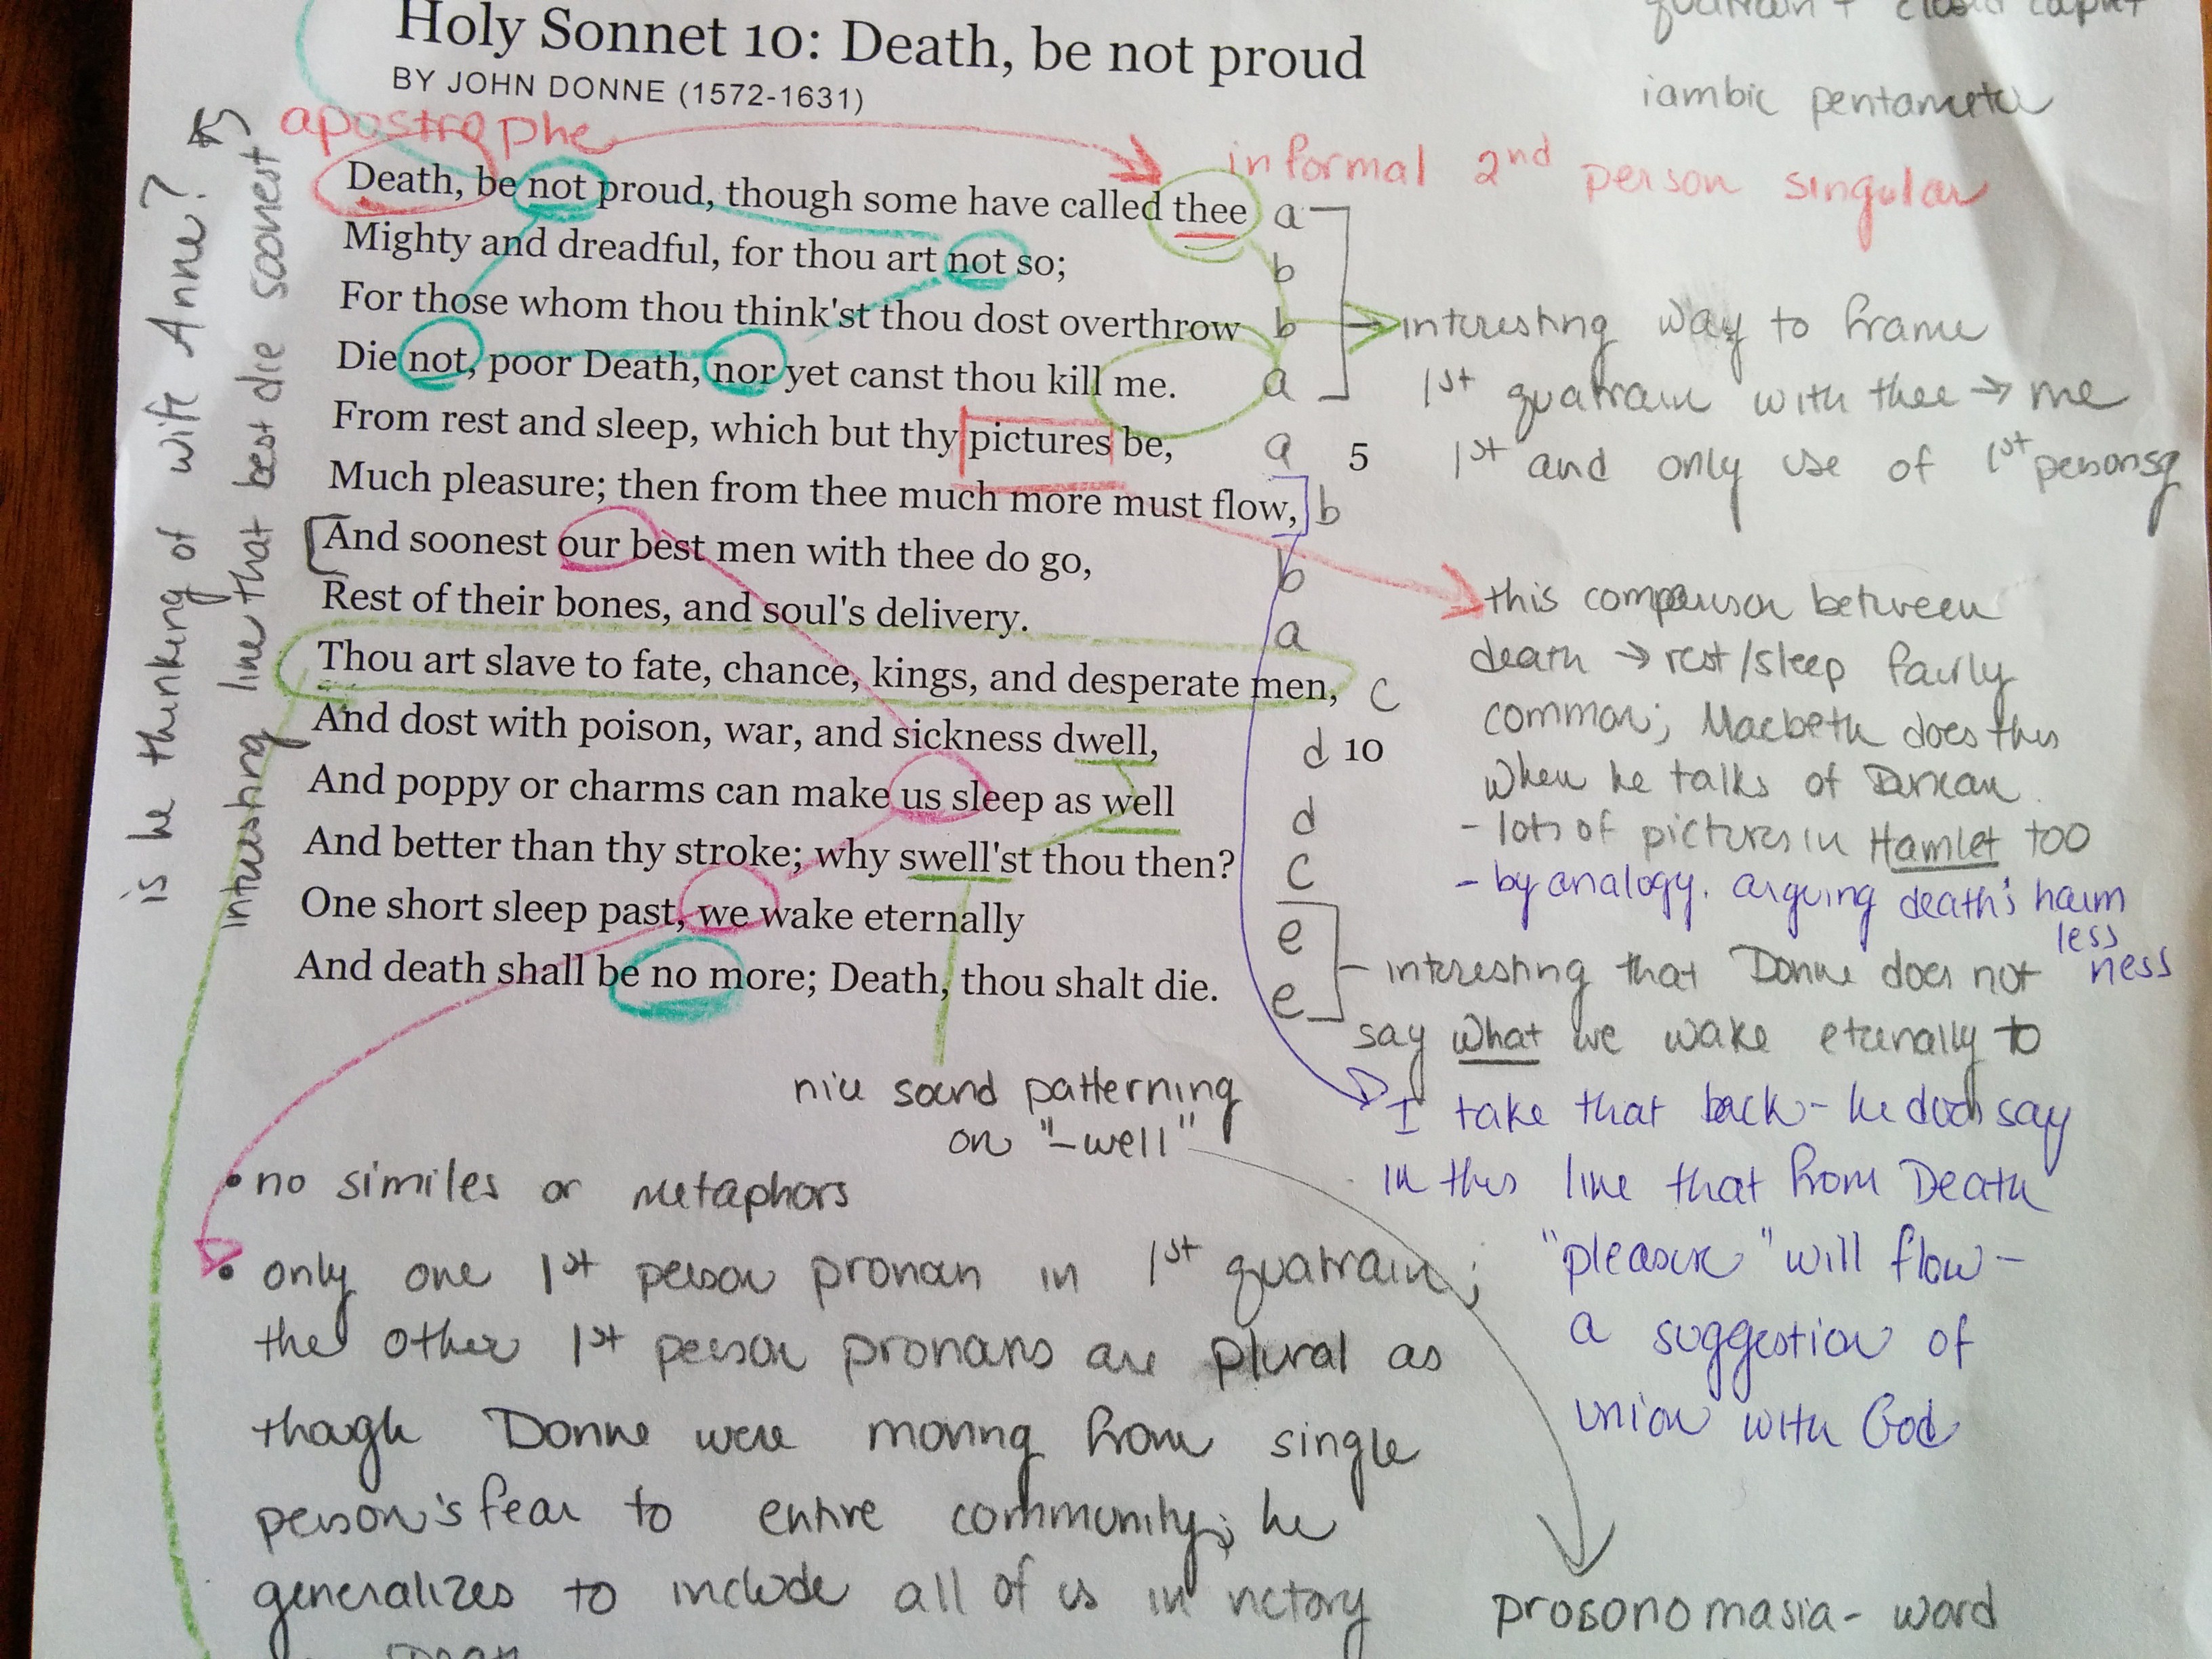 Holy Sonnet 10: Death, be not proud
BY JOHN DONNE (1572-1631)
quatrain + closed
iambic pentameter
apostrophe
informal 2nd person singular
Death, be not proud, though some have called thee a
Mighty and dreadful, for thou art not so; b
For those whom thou think'st thou dost overthrow b
Die not, poor Death, nor yet canst thou kill me. a
From rest and sleep, which but thy pictures be, a 5
Much pleasure; then from thee much more must flow, b
And soonest our best men with thee do go, b
Rest of their bones, and soul's delivery. a
Thou art slave to fate, chance, kings, and desperate men, c
And dost with poison, war, and sickness dwell, d 10
And poppy or charms can make us sleep as well d
And better than thy stroke; why swell'st thou then? c
One short sleep past, we wake eternally e
And death shall be no more; Death, thou shalt die. e
interesting way to frame
1st quatrain with thee → me
1st and only use of 1st person sg
this comparison between
death → rest/sleep fairly
common; Macbeth does this
when he talks of Duncan.
- lots of pictures in Hamlet too
- by analogy. arguing death's harm
less
ness
interesting that Donne does not
say what we wake eternally to
I take that back - he does say
in this line that from Death
"pleasure" will flow -
a suggestion of
union with God
is he thinking of wife Anne?
interesting line that best die soonest
nice sound patterning
on "-well"
• no similes or metaphors
• only one 1st person pronoun in 1st quatrain;
the other 1st person pronouns are plural as
though Donne were moving from single
person's fear to entire community; he
generalizes to include all of us in victory
prosonomasia - word